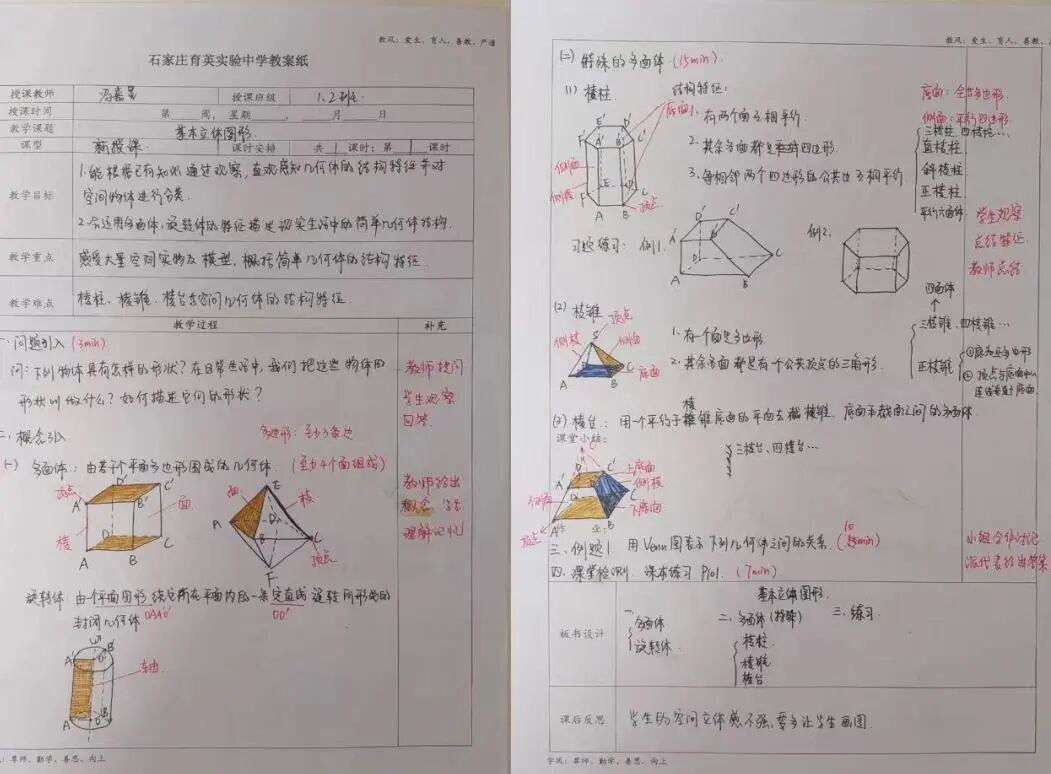 教风：爱生、育人、善教、严谨
石家庄育英实验中学教案纸
授课教师
授课班级 1、2班
授课时间 第 周，星期 ， 月 日
教学课题 基本立体图形.
课型 新授课 课时安排 共 课时：第 课时
教学目标
1.能根据已有知识通过观察，直观感知几何体的结构特征并对
空间物体进行分类.
2.会运用多面体、旋转体的特征描述现实生活中的简单几何体结构.
教学重点 感受大量空间实物及模型，概括简单几何体的结构特征.
教学难点 棱柱、棱锥、棱台等空间几何体的结构特征.
教学过程 补充
一、问题引入 (3min)
问：下列物体具有怎样的形状？在日常生活中，我们把这些物体的
形状叫做什么？如何描述它们的形状？
教师提问
学生观察
回答
二、概念引入
多边形：至少3条边
(一) 多面体：由若干个平面多边形围成的几何体. (至少4个面组成)
教师给出
概念 学生
理解记忆
顶点
D'
C'
A'
B'
面
棱
D
A
B
C
面
E
棱
A
D
B
C
顶点
F
旋转体 由一个平面图形绕它所在平面内的一条定直线旋转所形成的
封闭几何体 OAA'O' OO'
O'
B'
A'
轴
A
O
B
学风：尊师、勤学、善思、向上
教风：爱生、育人、善教、严谨
(二) 特殊的多面体 (15min)
(1) 棱柱 结构特征：
底面
1. 有两个面互相平行.
2. 其余各面都是四边形.
3. 每相邻两个四边形的公共边互相平行
底面：全等多边形.
侧面：平行四边形.
三棱柱、四棱柱…
直棱柱
斜棱柱
正棱柱
平行六面体
E'
D'
F'
C'
A'
B'
侧面
侧棱
E
D
F
C
A
B
顶点
学生观察
总结特征
教师总结
习题练习：例1.
D'
C'
A'
B'
D
C
A
B
例2.
(2) 棱锥
顶点
S
侧棱
侧面
D
C
A
B
底面
1. 有一个面是多边形.
2. 其余各面都是有一个公共顶点的三角形.
四面体
三棱锥、四棱锥…
正棱锥
①底为正多边形
② 顶点与底面中心
连线垂直于底面.
(3) 棱台：用一个平行于棱锥底面的平面去截棱锥，底面和截面之间的多面体.
课堂小结：
三棱台、四棱台…
D'
C'
A'
上底面
侧棱
侧面
C
下底面
顶点
A
三、例题1 用Venn图表示下列几何体之间的关系. (10min)
小组合作讨论
派代表给出答案
四、课堂检测 课本练习 P101. (7min)
板书设计
基本立体图形.
一、多面体
旋转体.
二、多面体(特殊)
棱柱
棱锥
棱台
三、练习.
课后反思 学生的空间立体感不强，要多让学生画图.
学风：尊师、勤学、善思、向上